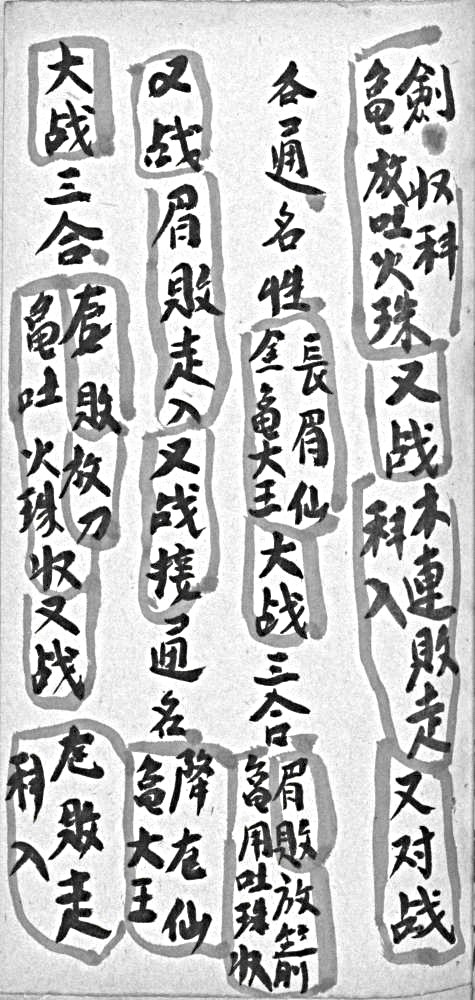 劍收科
龟放吐火珠
又战
木連敗走
科入
又对战
各通名性
長眉仙
金龟大王
大战
三合
眉敗放箭
龟用吐珠收
又战
眉敗走入
又战接
通名
降左仙
龟大王
大战
三合
敗放刀
龟吐火珠收
又战
左敗走
科入